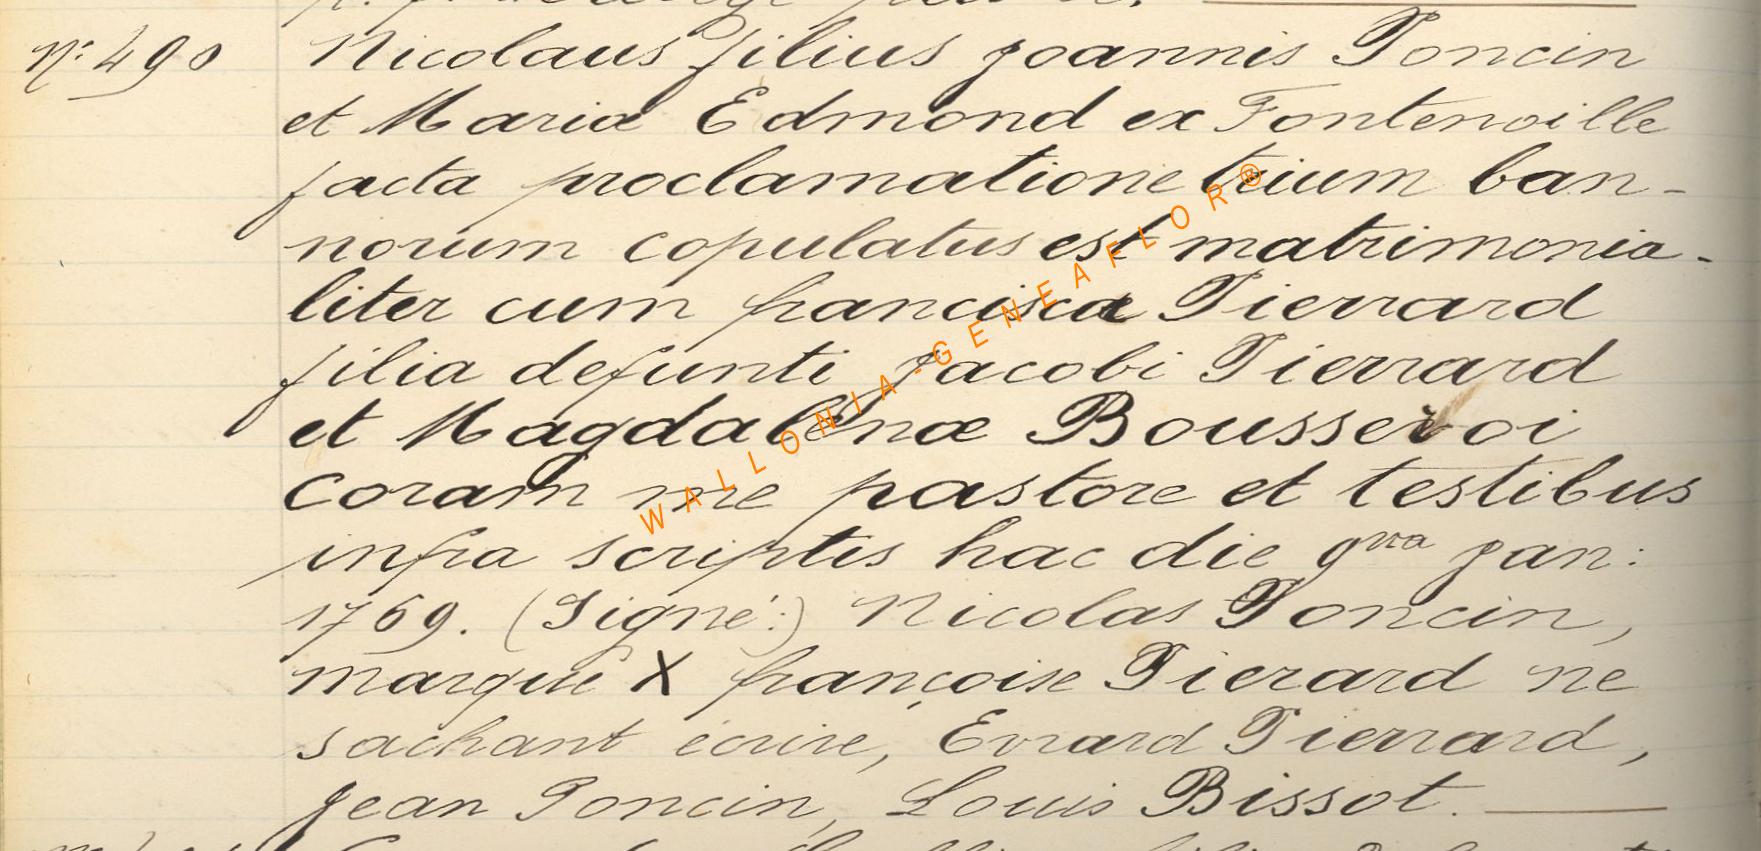 Nº 490 Nicolaus filius joannis Poncin
et Mariæ Edmond ex Fontenoille
facta proclamatione trium ban-
norum copulatus est matrimonia-
liter cum francisca Pierrard
filia defunti Jacobi Pierrard
et Magdalenæ Bousseroi
coram me pastore et testibus
infra scriptis hac die 9na jan:
1769. (Signé:) Nicolas Poncin,
marque X françoise Pierard ne
sachant écrire, Evrard Pierrard,
Jean Poncin, Louis Bissot.
WALLONIA-GENEAFLOR®